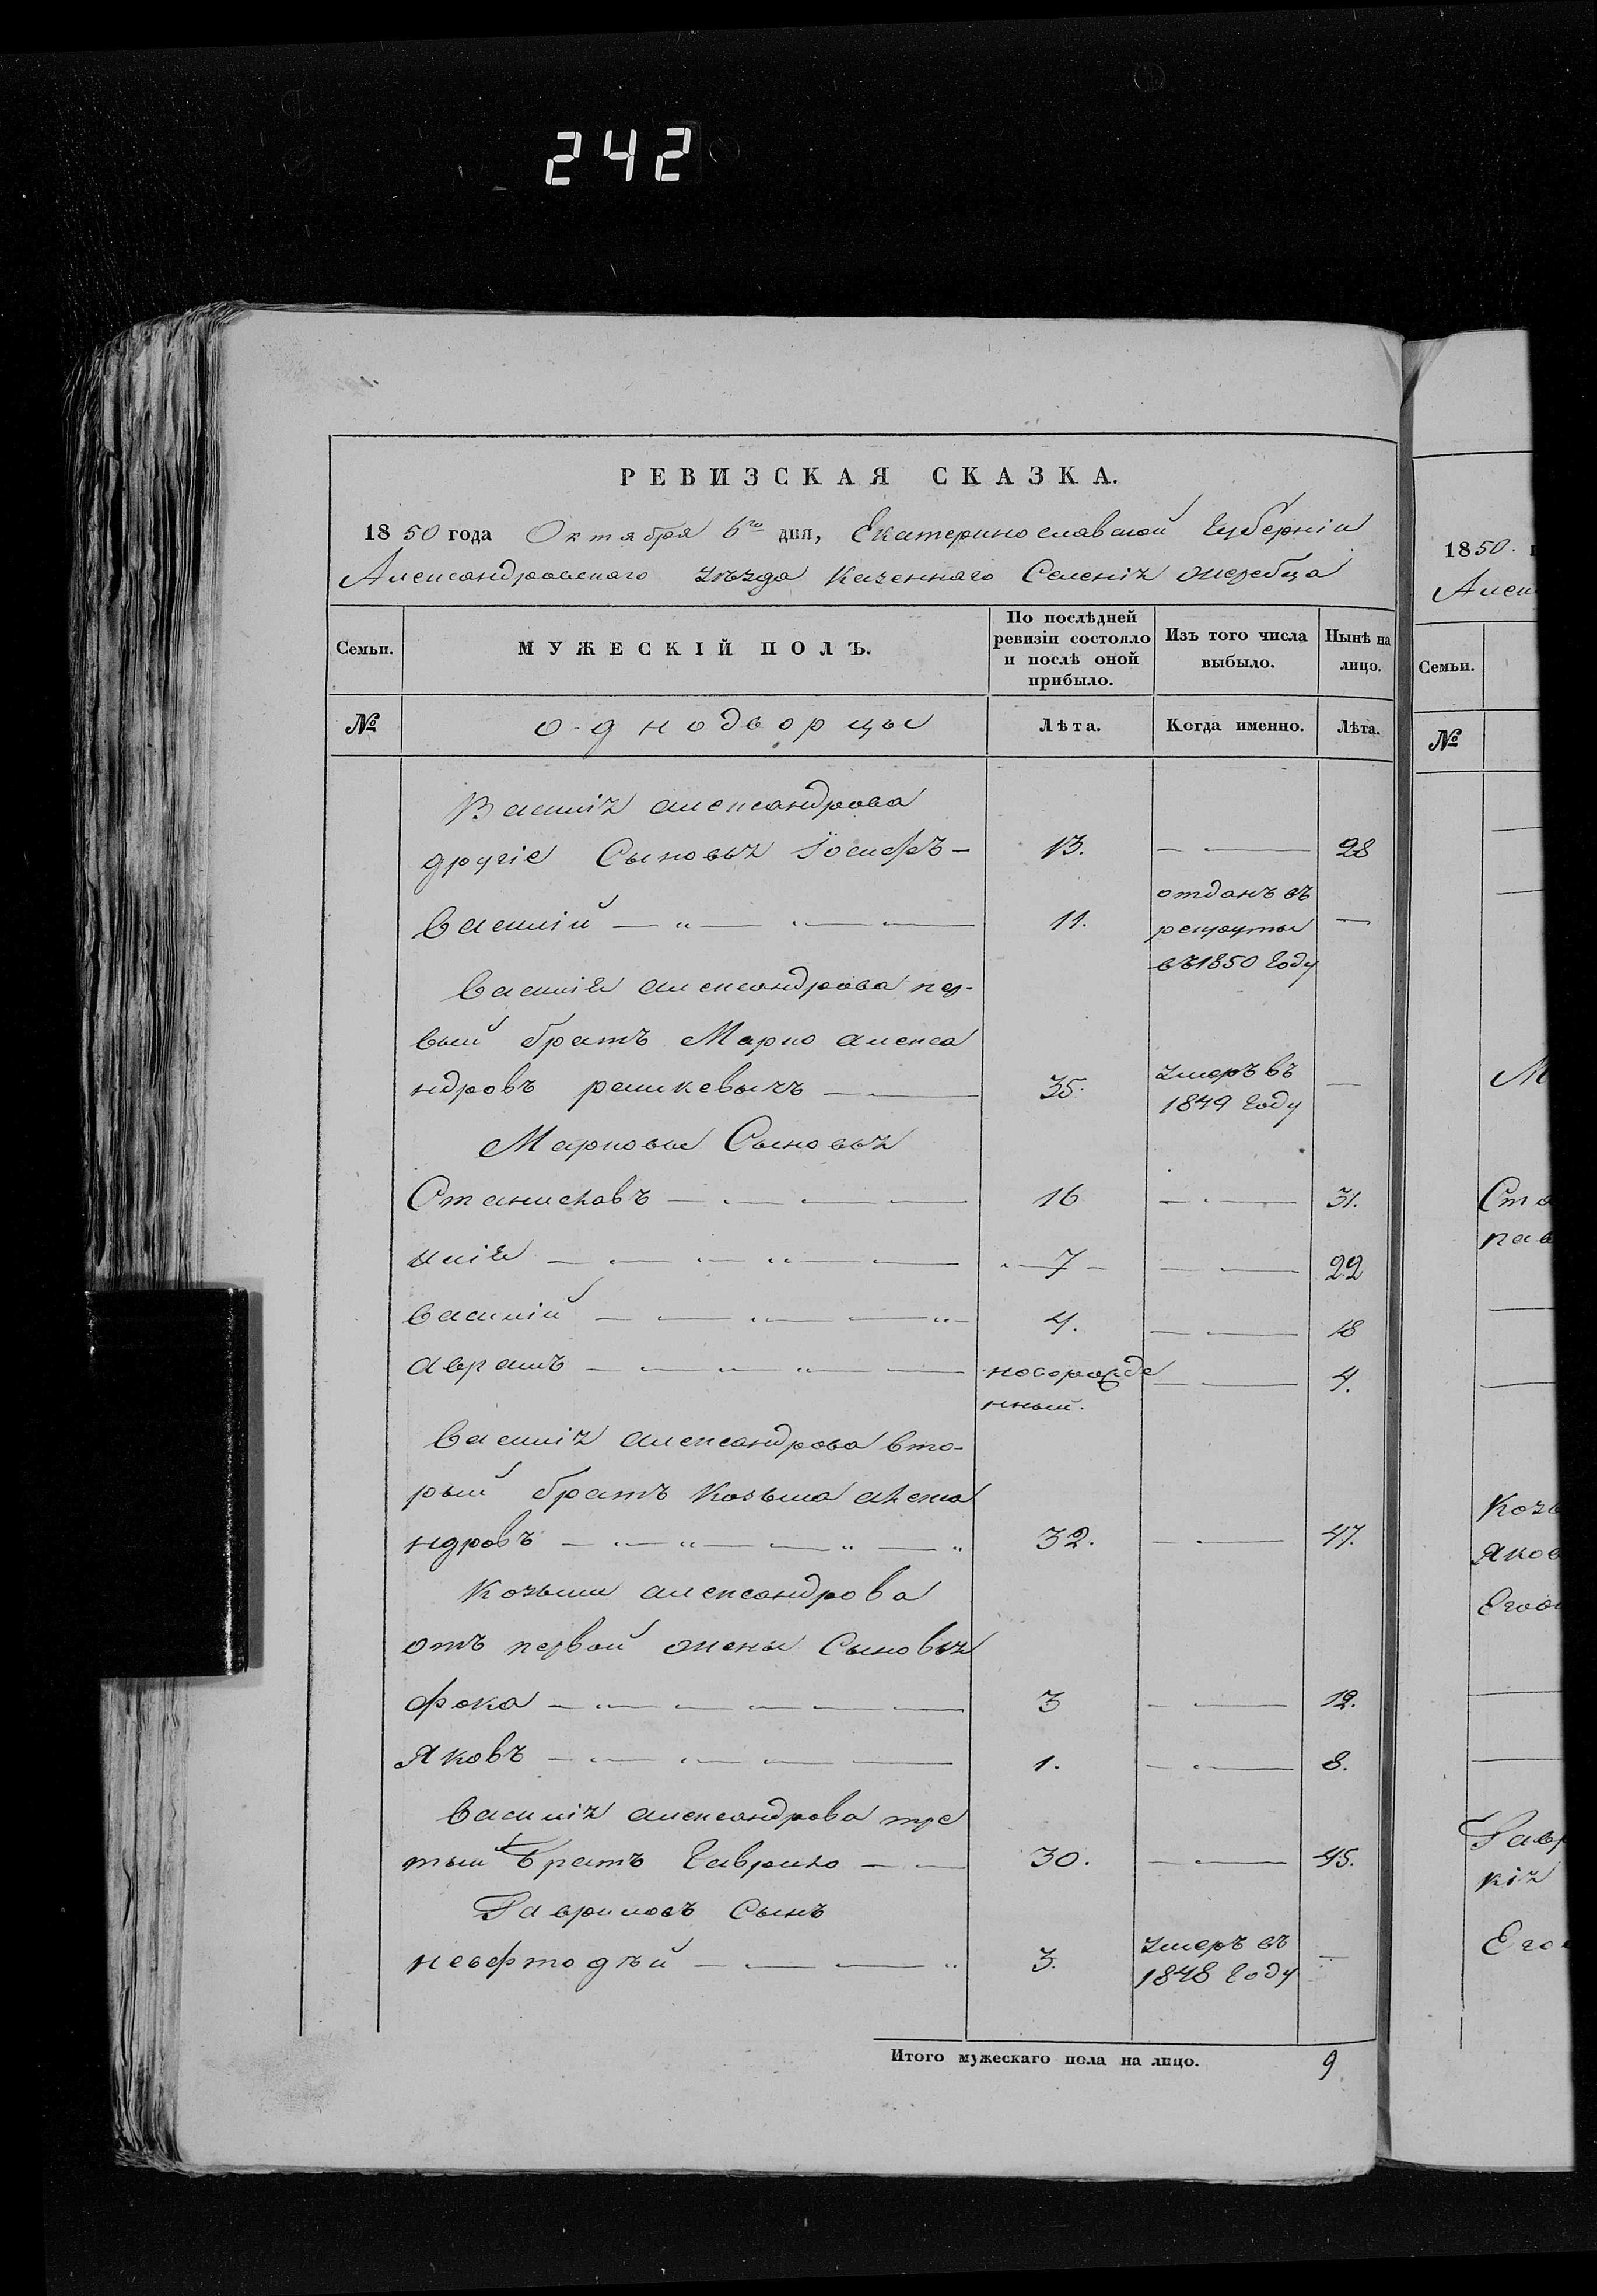 242
РЕВИЗСКАЯ СКАЗКА.
1850 года Октября 6го дня, Екатеринославской Губерніи
Александровскаго уѣзда Казеннаго Селенія жеребца
Семьи.
МУЖЕСКІЙ ПОЛЪ.
По послѣдней ревизіи состояло и послѣ оной прибыло.
Изъ того числа выбыло.
Нынѣ на лицо.
№
однодворцы
Лѣта.
Когда именно.
Лѣта.
Василія александрова
другіе Сыновья Іосифъ — 13. — 28
Василій — 11. отданъ въ рекруты въ 1850 Году —
Василія александрова пер-
вый братъ Марко алекса
ндровъ 35. умеръ въ 1849 Году —
Марковы Сыновья
Станиславъ — 16 — 31.
илія — 7 — 22
Василій — 4. — 18
аврамъ — новорожде нный. — 4.
Василія александрова вто-
рый братъ Козьма алекса
ндровъ — 32. — 47.
Козьмы александрова
отъ первой жены Сыновья
фока — 3 — 12.
Яковъ — 1. — 8.
Василія александрова тре
тый Братъ Гаврило — 30. — 45.
Гавриловъ Сынъ
неофтодѣй — 3. умеръ въ 1848 Году —
Итого мужескаго пола на лицо. 9
1850.
Семьи.
№